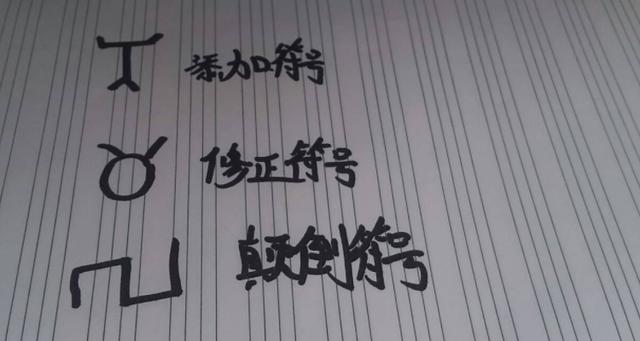 添加符号
修正符号
颠倒符号